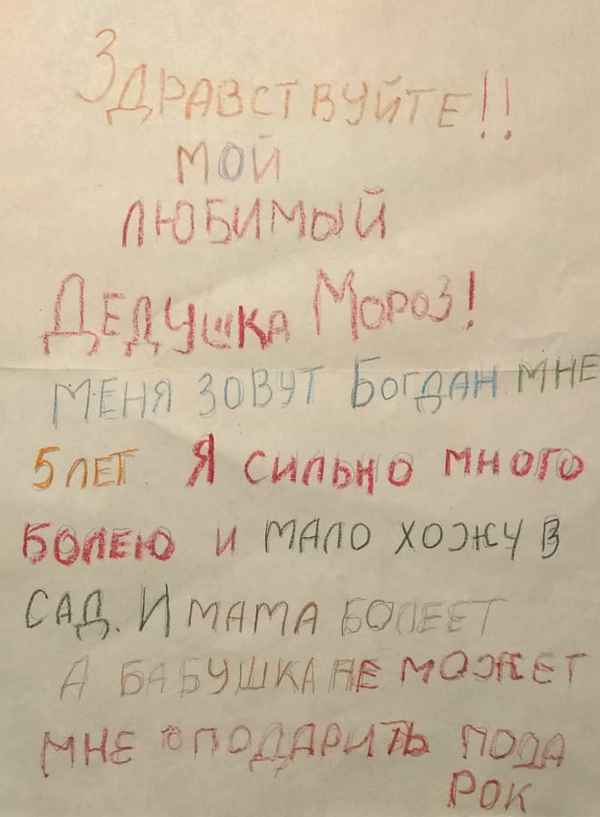 Здравствуйте!!
мой
любимый
Дедушка Мороз!
меня зовут Богдан мне
5 лет. Я сильно много
болею и мало хожу в
сад. И мама болеет
а бабушка не может
мне подарить пода
рок